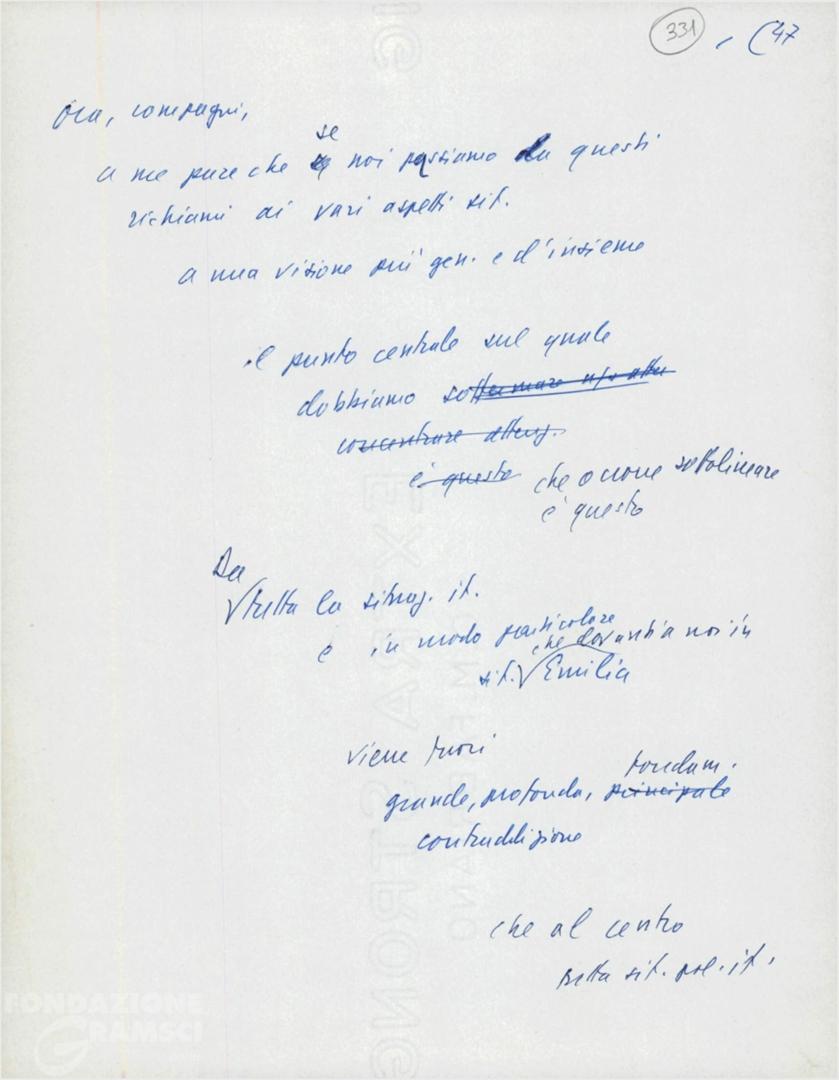 331
(47
Ora, compagni,
a me pare che se noi passiamo da questi
richiami ai vari aspetti sit.
a una visione più gen. e d'insieme
il punto centrale sul quale
dobbiamo soffermare n/s atten
concentrare attenz.
è questo che occorre sottolineare
è questo
Da
tutta la situaz. it.
e in modo particolare
che davanti a noi in
sit. Emilia
viene fuori
fondam.
grande, profonda, principale
contraddizione
che al centro
della sit. pol. it.
FONDAZIONE
GRAMSCI
EXTRA STRONG